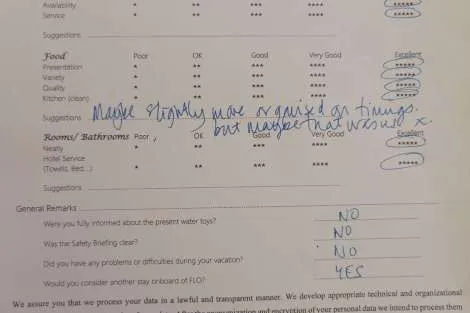 Availability * ** *** **** *****
Service * ** *** **** *****
Suggestions
Food Poor OK Good Very Good Excellent
Presentation * ** *** **** *****
Variety * ** *** **** *****
Quality * ** *** **** *****
Kitchen (clean) * ** *** **** *****
Suggestions Maybe slightly more organised on timings.
but maybe that was us x.
Rooms/ Bathrooms Poor OK Good Very Good Excellent
Neatly * ** *** **** *****
Hotel Service
(Towells, Bed...) * ** *** **** *****
Suggestions
General Remarks
Were you fully informed about the present water toys? NO
Was the Safety Briefing clear? NO
Did you have any problems or difficulties during your vacation? NO
Would you consider another stay onboard of FLO? YES
We assure you that we process your data in a lawful and transparent manner. We develop appropriate technical and organizational
and encryption of your personal data we intend to process them